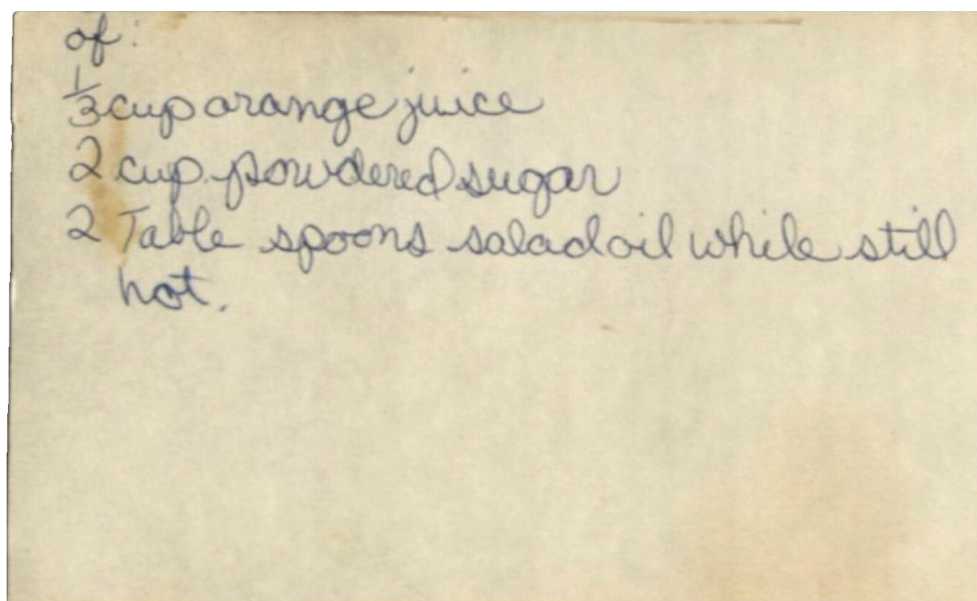 of:
1/3 cup orange juice
2 cup powdered sugar
2 Table spoons salad oil while still
hot.